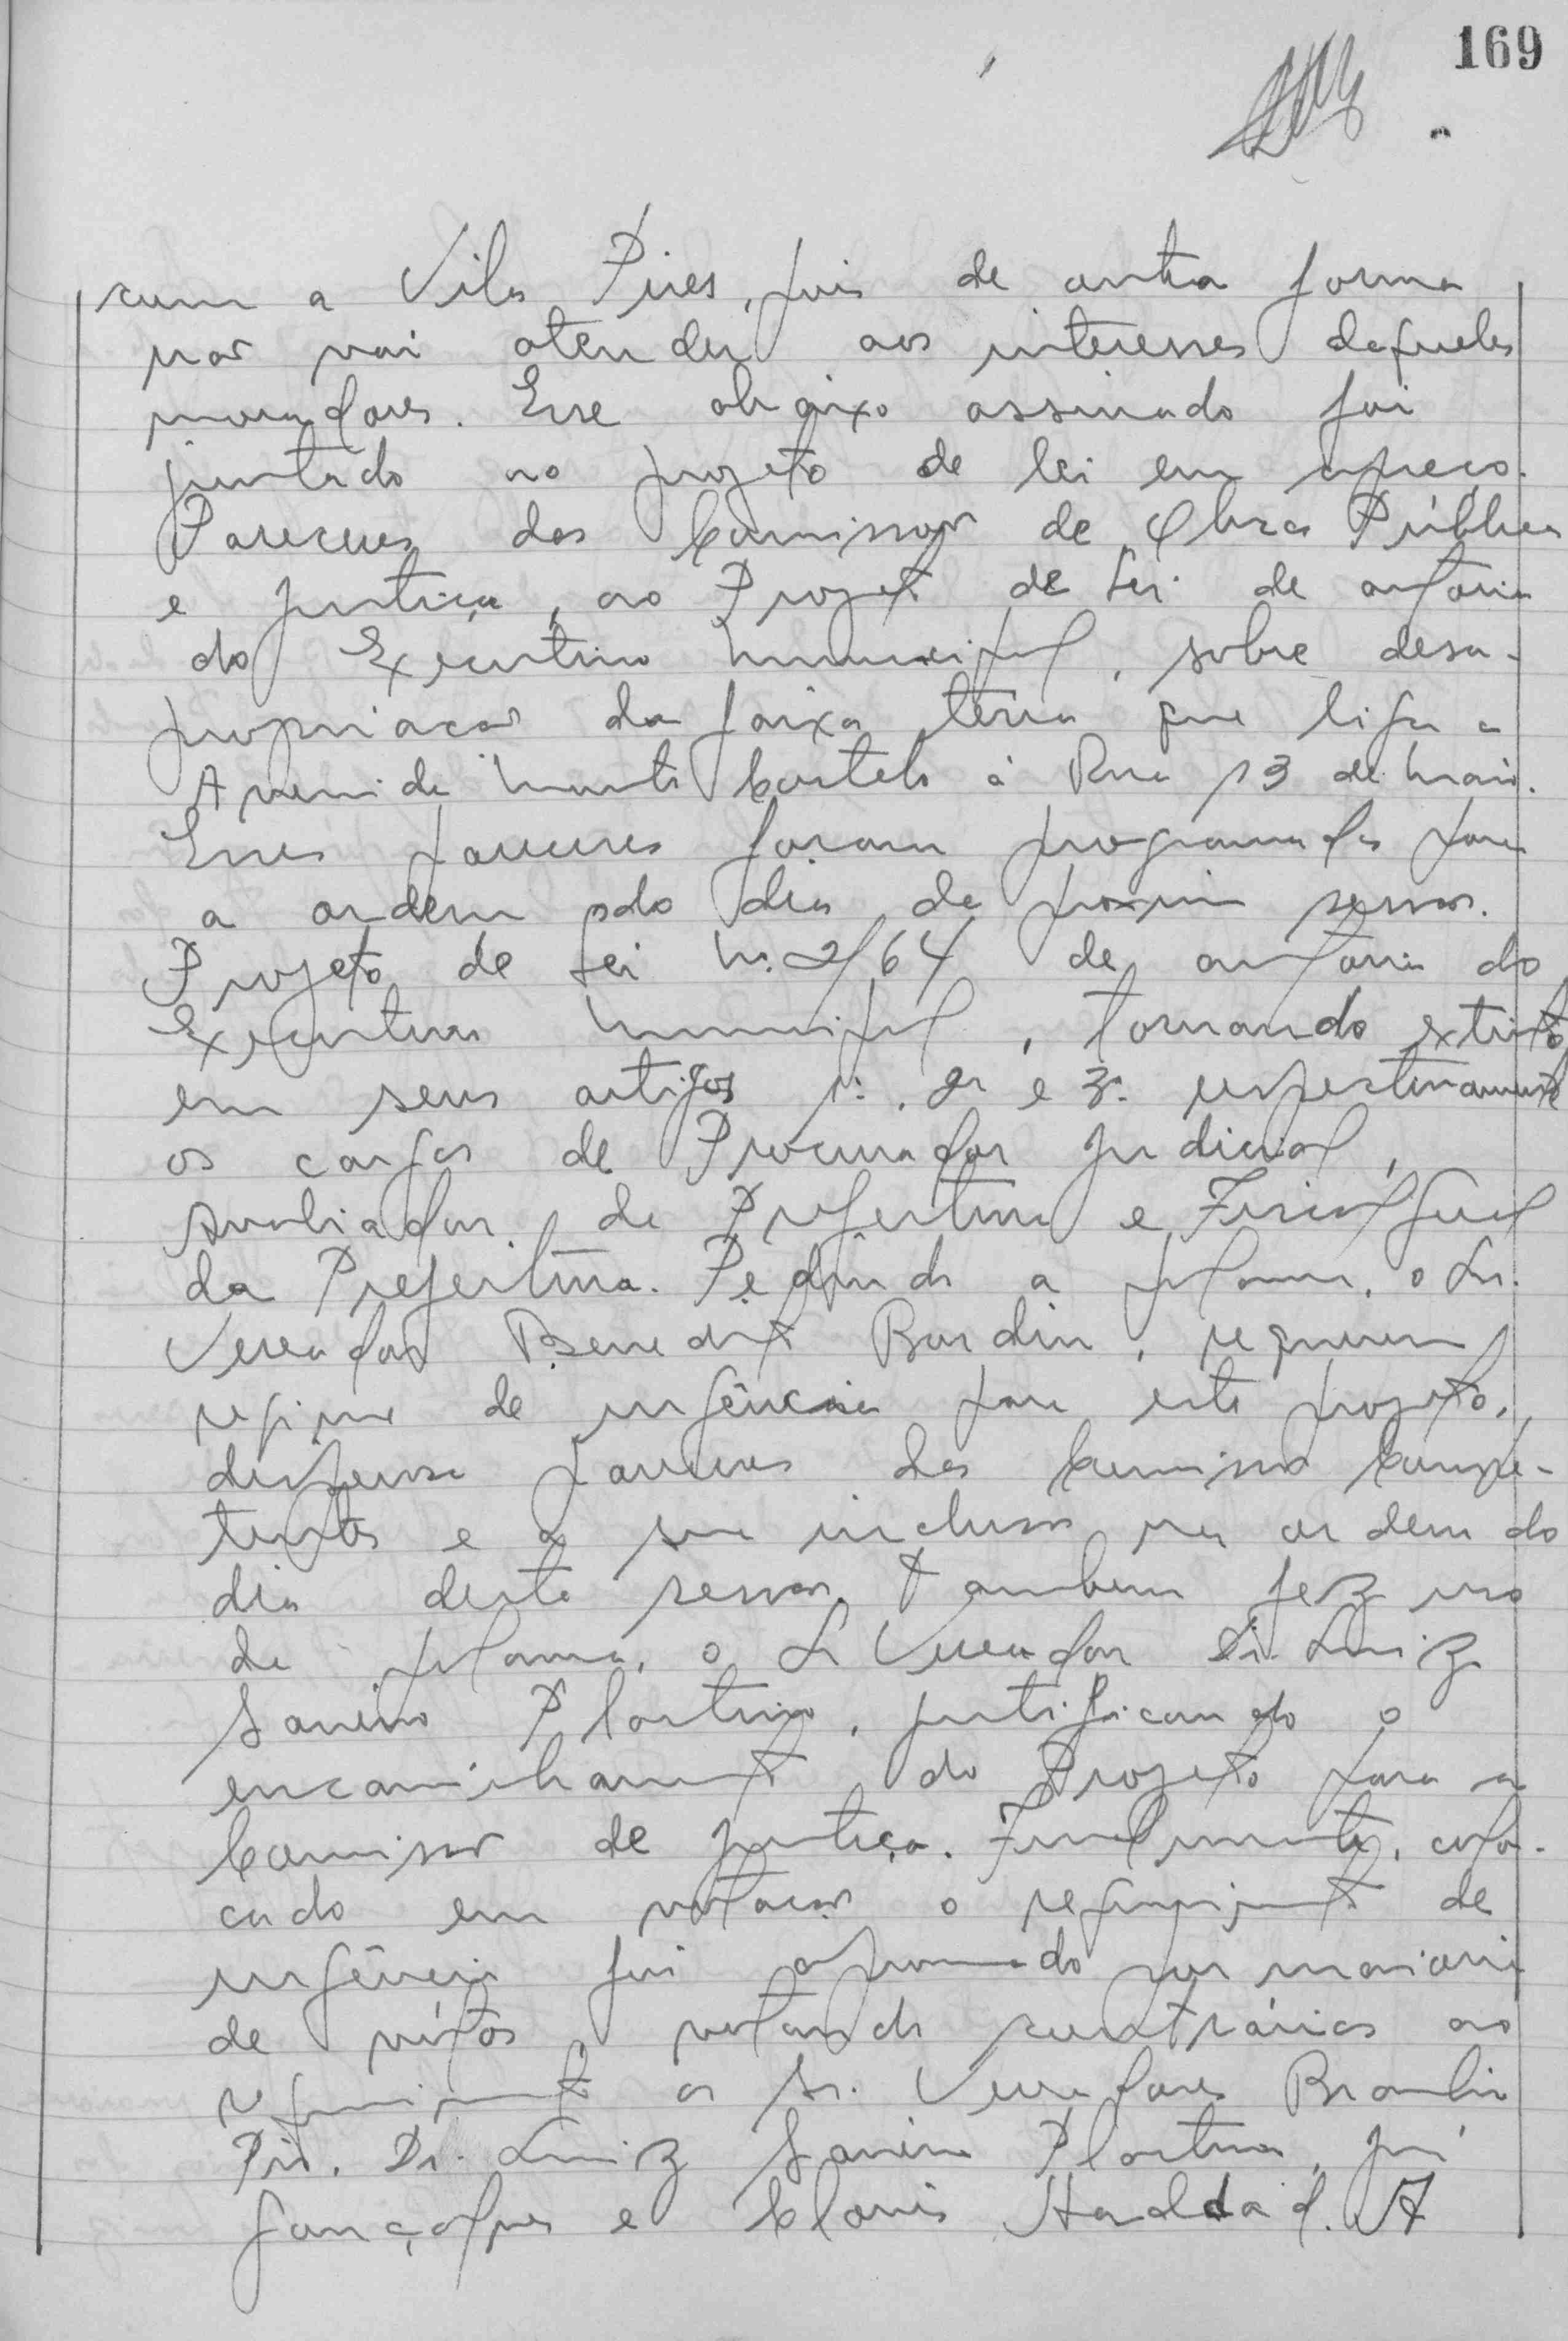 169
com a Vila Pires, pois de outra forma
não vai atender aos interesses daqueles
moradores. Esse abaixo assinado foi
juntado ao projeto de lei em apreço.
Pareceres das Comissões de Obras Públicas
e Justiça, ao Projeto de Lei de autoria
do Executivo Municipal, sobre desa-
propriação da faixa terra que liga a
Avenida Monte Castelo á Rua 13 de Maio.
Esses pareceres foram programados para
a ordem do dia da proxima sessão.
Projeto de Lei N. 2/64 de autoria do
Executivo Municipal, tornando extinto
em seus artigos 1º, 2º e 3º respectivamente
os cargos de Procurador Judicial,
Avaliador da Prefeitura e Fiscal Geral
da Prefeitura. Pedindo a palavra, o Sr.
Vereador Benedito Bardin, requereu
regime de urgência para este projeto,
dispensa pareceres das Comissões Compe-
tentes e a sua inclusão na ordem do
dia desta sessão. Tambem fez uso
da palavra, o Sr Vereador Dr. Luiz
Savino Plastino, justificando o
encaminhamento do Projeto para a
Comissão de Justiça. Finalmente, colo-
cado em votação o requerimento de
urgência foi aprovado por maioria
de vótos, votando contrários ao
requerimento os Sr. Vereadores Braulio
Pio, Dr. Luiz Savino Plastino,
Gonçalves e Clovis Haddad. A